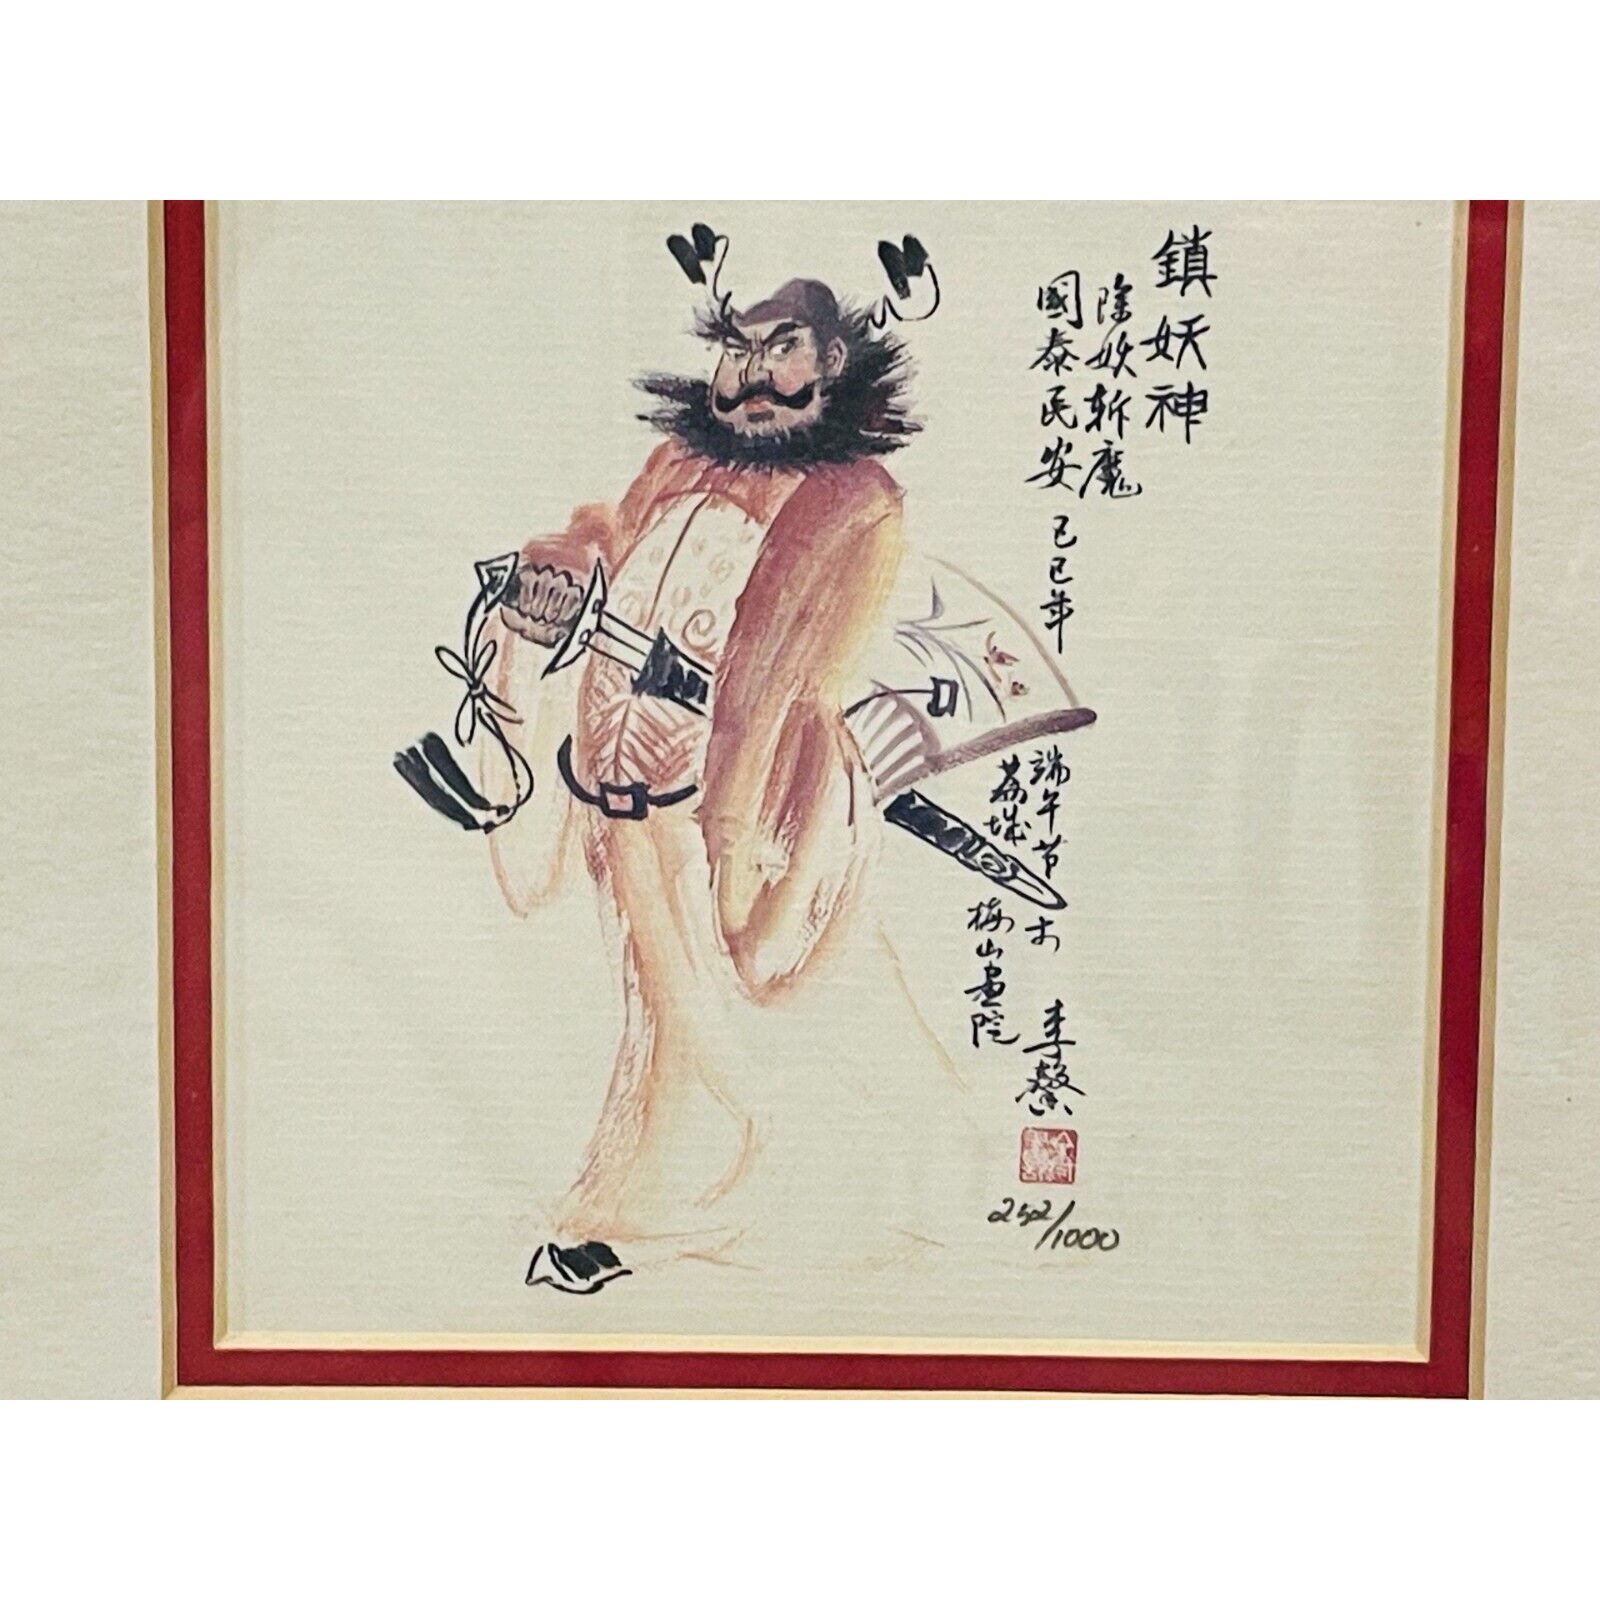 鎮妖神
除妖斬魔
國泰民安
己巳年
端午节于
荔城
梅山画院
李
252/1000